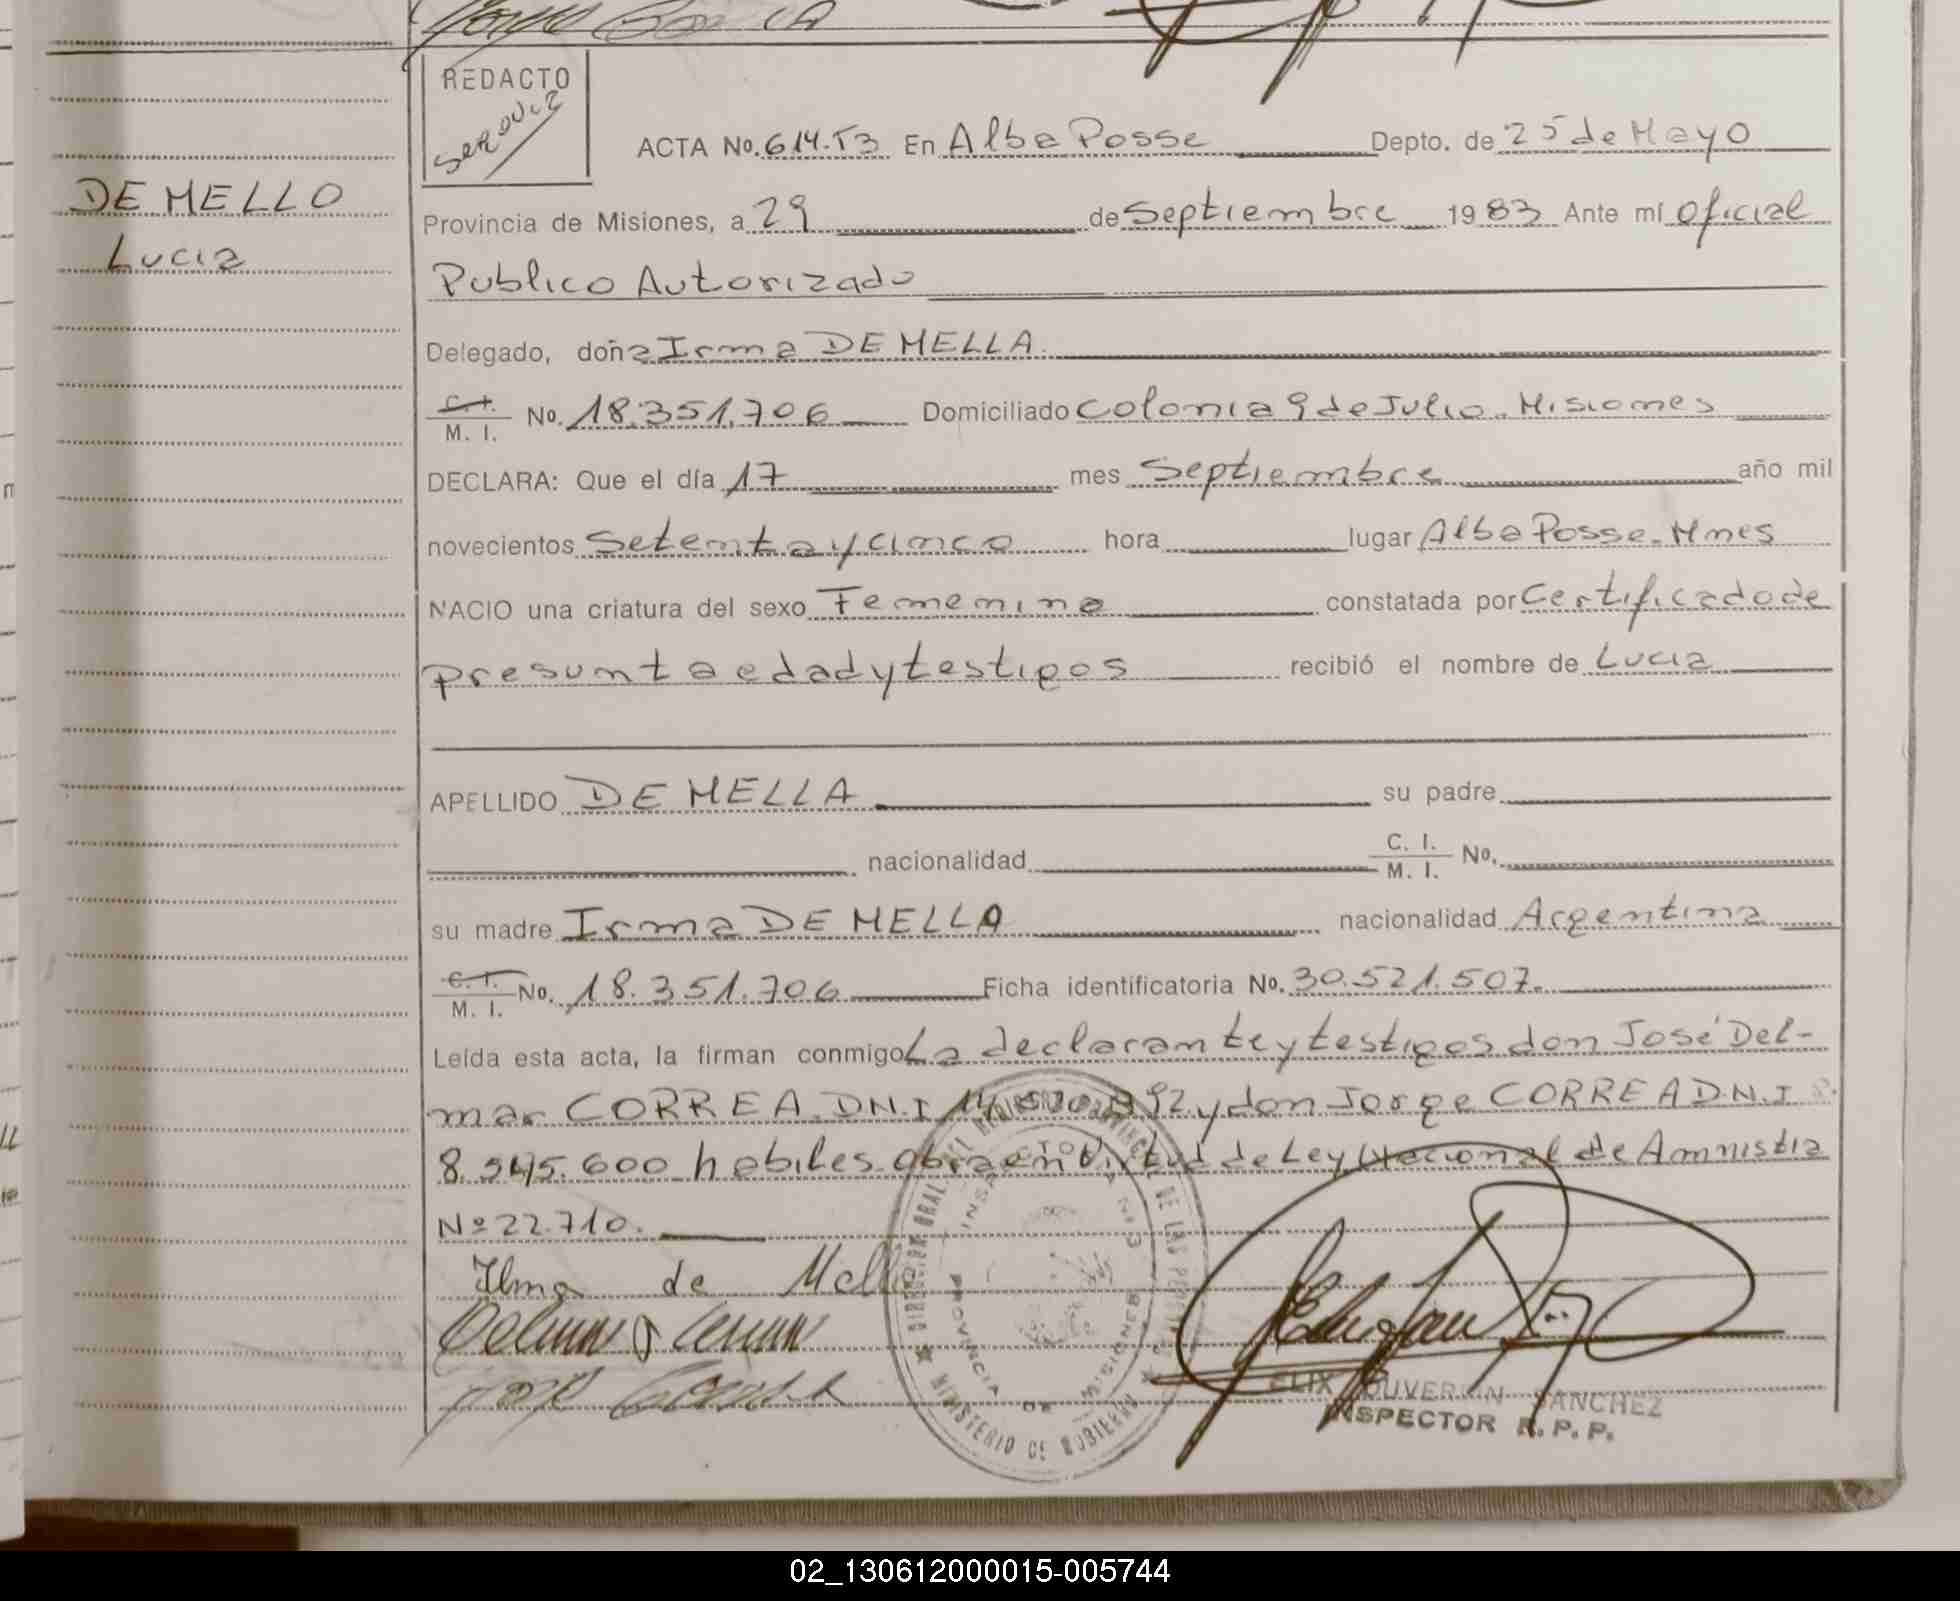 REDACTO
ACTA No. 614.T3 En Alba Posse Depto. de 25 de Mayo
DE MELLO
Lucia
Provincia de Misiones, a 29 de Septiembre 1983 Ante mí Oficial
Publico Autorizado
Delegado, doña Irma DE MELLA.
C. I. / M. I. No. 18.351.706 Domiciliado Colonia 9 de Julio. Misiones
DECLARA: Que el día 17 mes Septiembre año mil
novecientos Setenta y cinco hora lugar Alba Posse. Mnes
NACIO una criatura del sexo Femenino constatada por Certificado de
presunta edad y testigos recibió el nombre de Lucia
APELLIDO DE MELLA su padre
nacionalidad C. I. / M. I. No.
su madre Irma DE MELLA nacionalidad Argentina
C. I. / M. I. No. 18.351.706 Ficha identificatoria No. 30.521.507.
Leída esta acta, la firman conmigo La declarante y testigos don José Del-
mar CORREA. D.N.I y don Jorge CORREA D.N.I
8.545.600 habiles. obra en Virtud de Ley Nacional de Amnistia
Nº 22.710.
Ilma de Mella
PROVINCIA DE MISIONES
MINISTERIO DE GOBIERNO
FELIX SANCHEZ
INSPECTOR R. P. P.
02_130612000015-005744